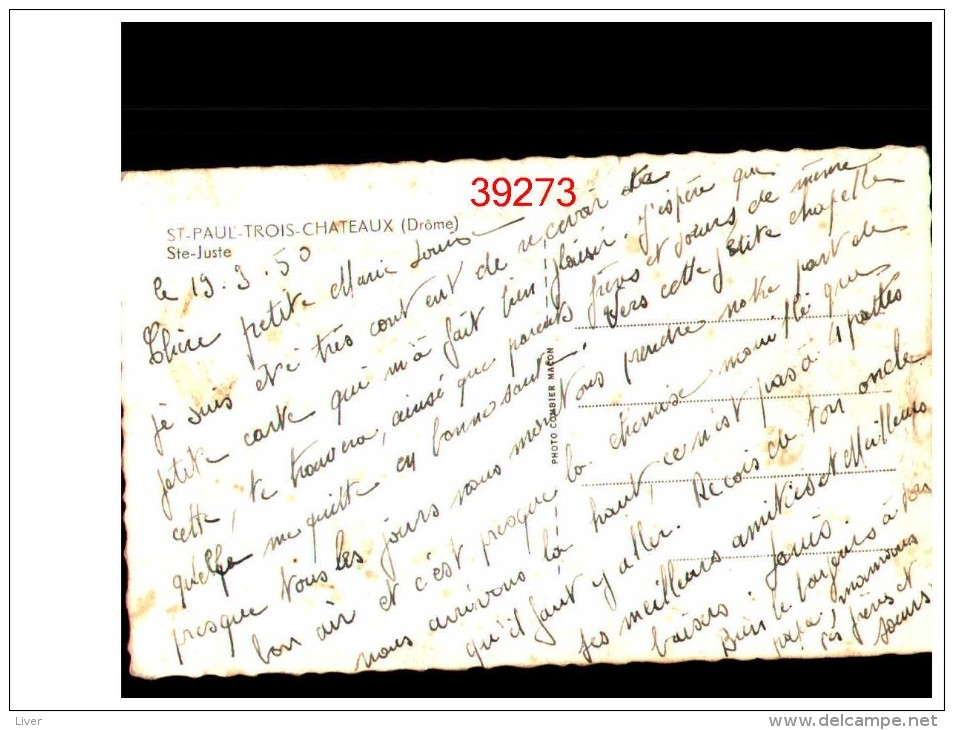 39273
ST-PAUL-TROIS-CHATEAUX (Drôme)
Ste-Juste
le 19.3.50
Chère petite Marie Louise
je suis été très content de recevoir ta
petite carte qui m'a fait bien plaisir. j'espère que
cette, te trouvera, ainsé que parents frères et sœurs de même
quelle me quitte en bonne santé. Vers cette petite chapelle
presque tous les jours nous montons prendre notre part de
bon air et c'est presque la chemise mouillé que
nous arrivons là haut, ce n'est pas à 4 pattes
qu'il faut y aller. Recois de ton oncle
ses meilleurs amitiés et Meilleurs
baisers.
Bien le bonjours à ton
papa, maman
ces frères et
sœurs
PHOTO COMBIER MACON
Liver
delcampe.net